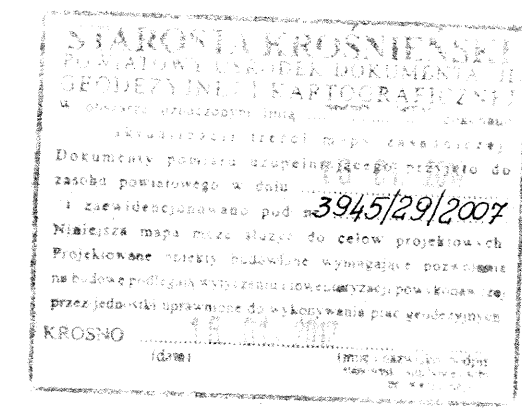 STAROSTA KROŚNIEŃSKI
POWIATOWY OŚRODEK DOKUMENTACJI
GEODEZYJNEJ I KARTOGRAFICZNEJ
W obszarze oznaczonym linią
aktualizacji treści mapy zasadniczej
Dokumenty pomiaru uzupełniającego przyjęto do
zasobu powiatowego w dniu
i zaewidencjonowano pod 3945/29/2007
Niniejsza mapa może służyć do celów projektowych
Projektowane obiekty budowlane wymagające pozwolenia
na budowę podlegają wytyczeniu i inwentaryzacji powykonawczej
przez jednostki uprawnione do wykonywania prac geodezyjnych
KROSNO
(data)